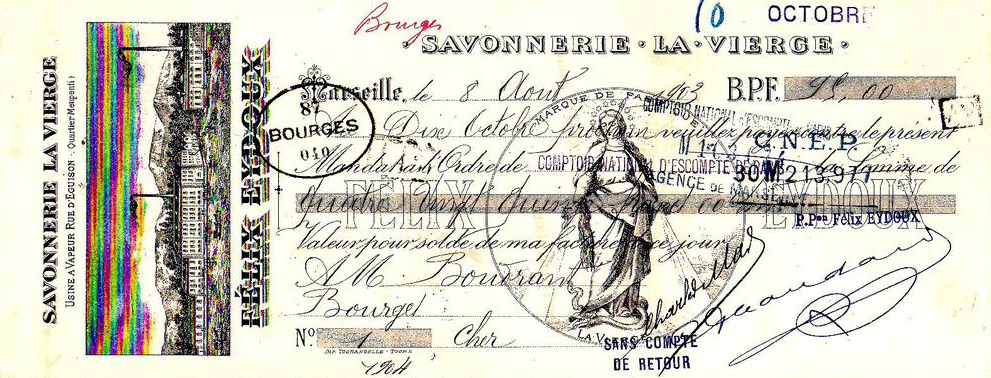 Bourges
10 OCTOBRE
SAVONNERIE · LA · VIERGE
SAVONNERIE LA VIERGE
USINE A VAPEUR RUE D'EGUISON - Quartier Menpenti
FÉLIX EYDOUX
Marseille, le 8 Août 1903 B.P.F. 95,00
87
BOURGES
040
MARQUE DE FA
Dix Octobre prochain veuillez payer contre le présent
Mandat à l'Ordre de la Somme de
COMPTOIR NATIONAL D'ESCOMPTE DE PARIS
COMPTOIR NATIONAL D'ESCOMPTE
AGENCE DE MARSEILLE
C.N.E.P.
FÉLIX EYDOUX
Quatre Vingt Quinze francs 00
P. Pon Félix EYDOUX
Valeur pour solde de ma facture ce jour
A M. Bourrant
Bourges
Nº 1 Cher
LA VIERGE
IMP. TOURANGELLE - TOURS
1904
SANS COMPTE
DE RETOUR